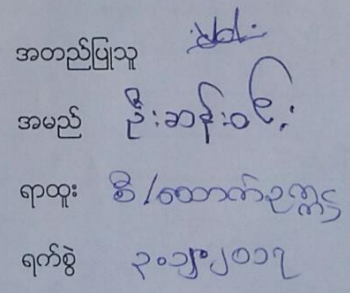 အတည်ပြုသူ
အမည် ဦးဆန်းဝင်း
ရာထူး စီ/ထောက်ဥက္ကဋ္ဌ
ရက်စွဲ ၃၀.၁၂.၂၀၁၇